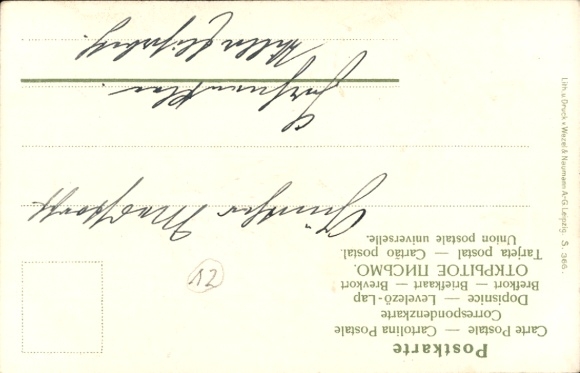 Postkarte
Carte Postale — Cartolina Postale
Correspondenzkarte
Dopisnice — Levelező-Lap
Brefkort — Briefkaart — Brevkort
ОТКРЫТОЕ ПИСЬМО.
Tarjeta postal — Cartão postal.
Union postale universelle.
Günther
12
Villa
Lith. u. Druck v. Wezel & Naumann A-G. Leipzig. S. 366.